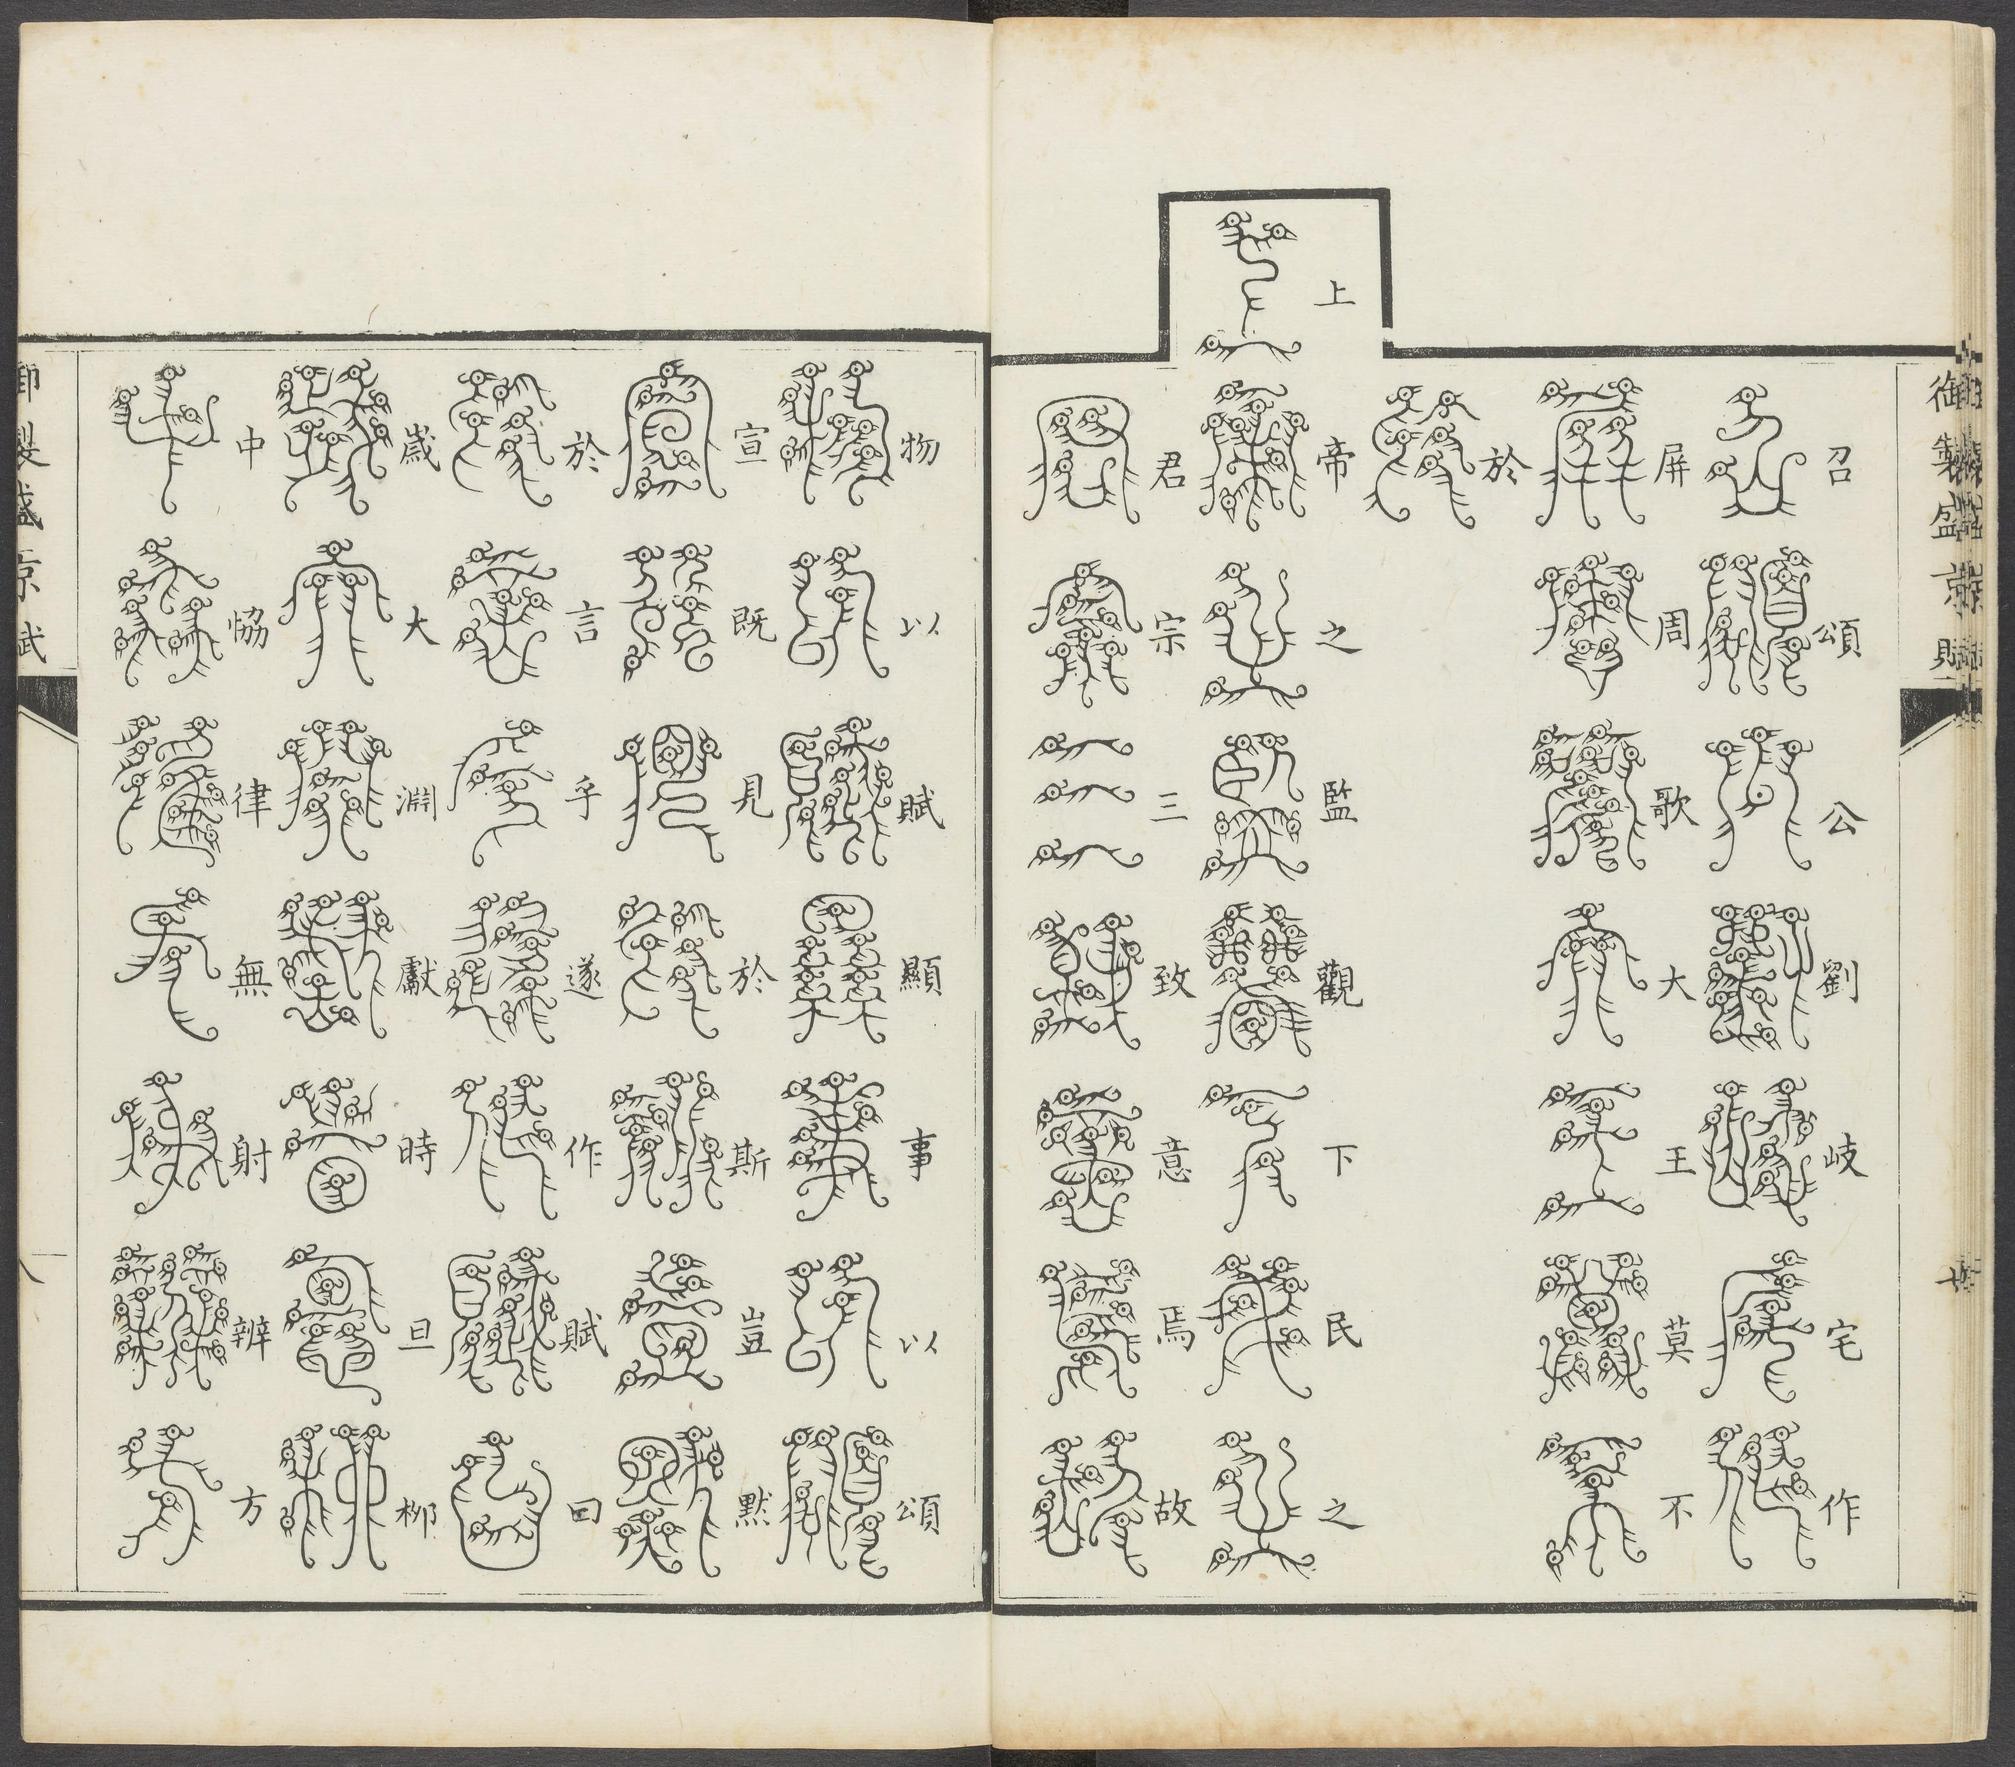 御製盛京賦
召頌公劉岐宅作
屏周歌大王莫不
於
上帝之監觀下民之
君宗三致意焉故
物以賦顯事以頌
宣既見於斯豈默
於言乎遂作賦曰
歲大淵獻時旦柳
中恊律無射辨方
御製盛京賦